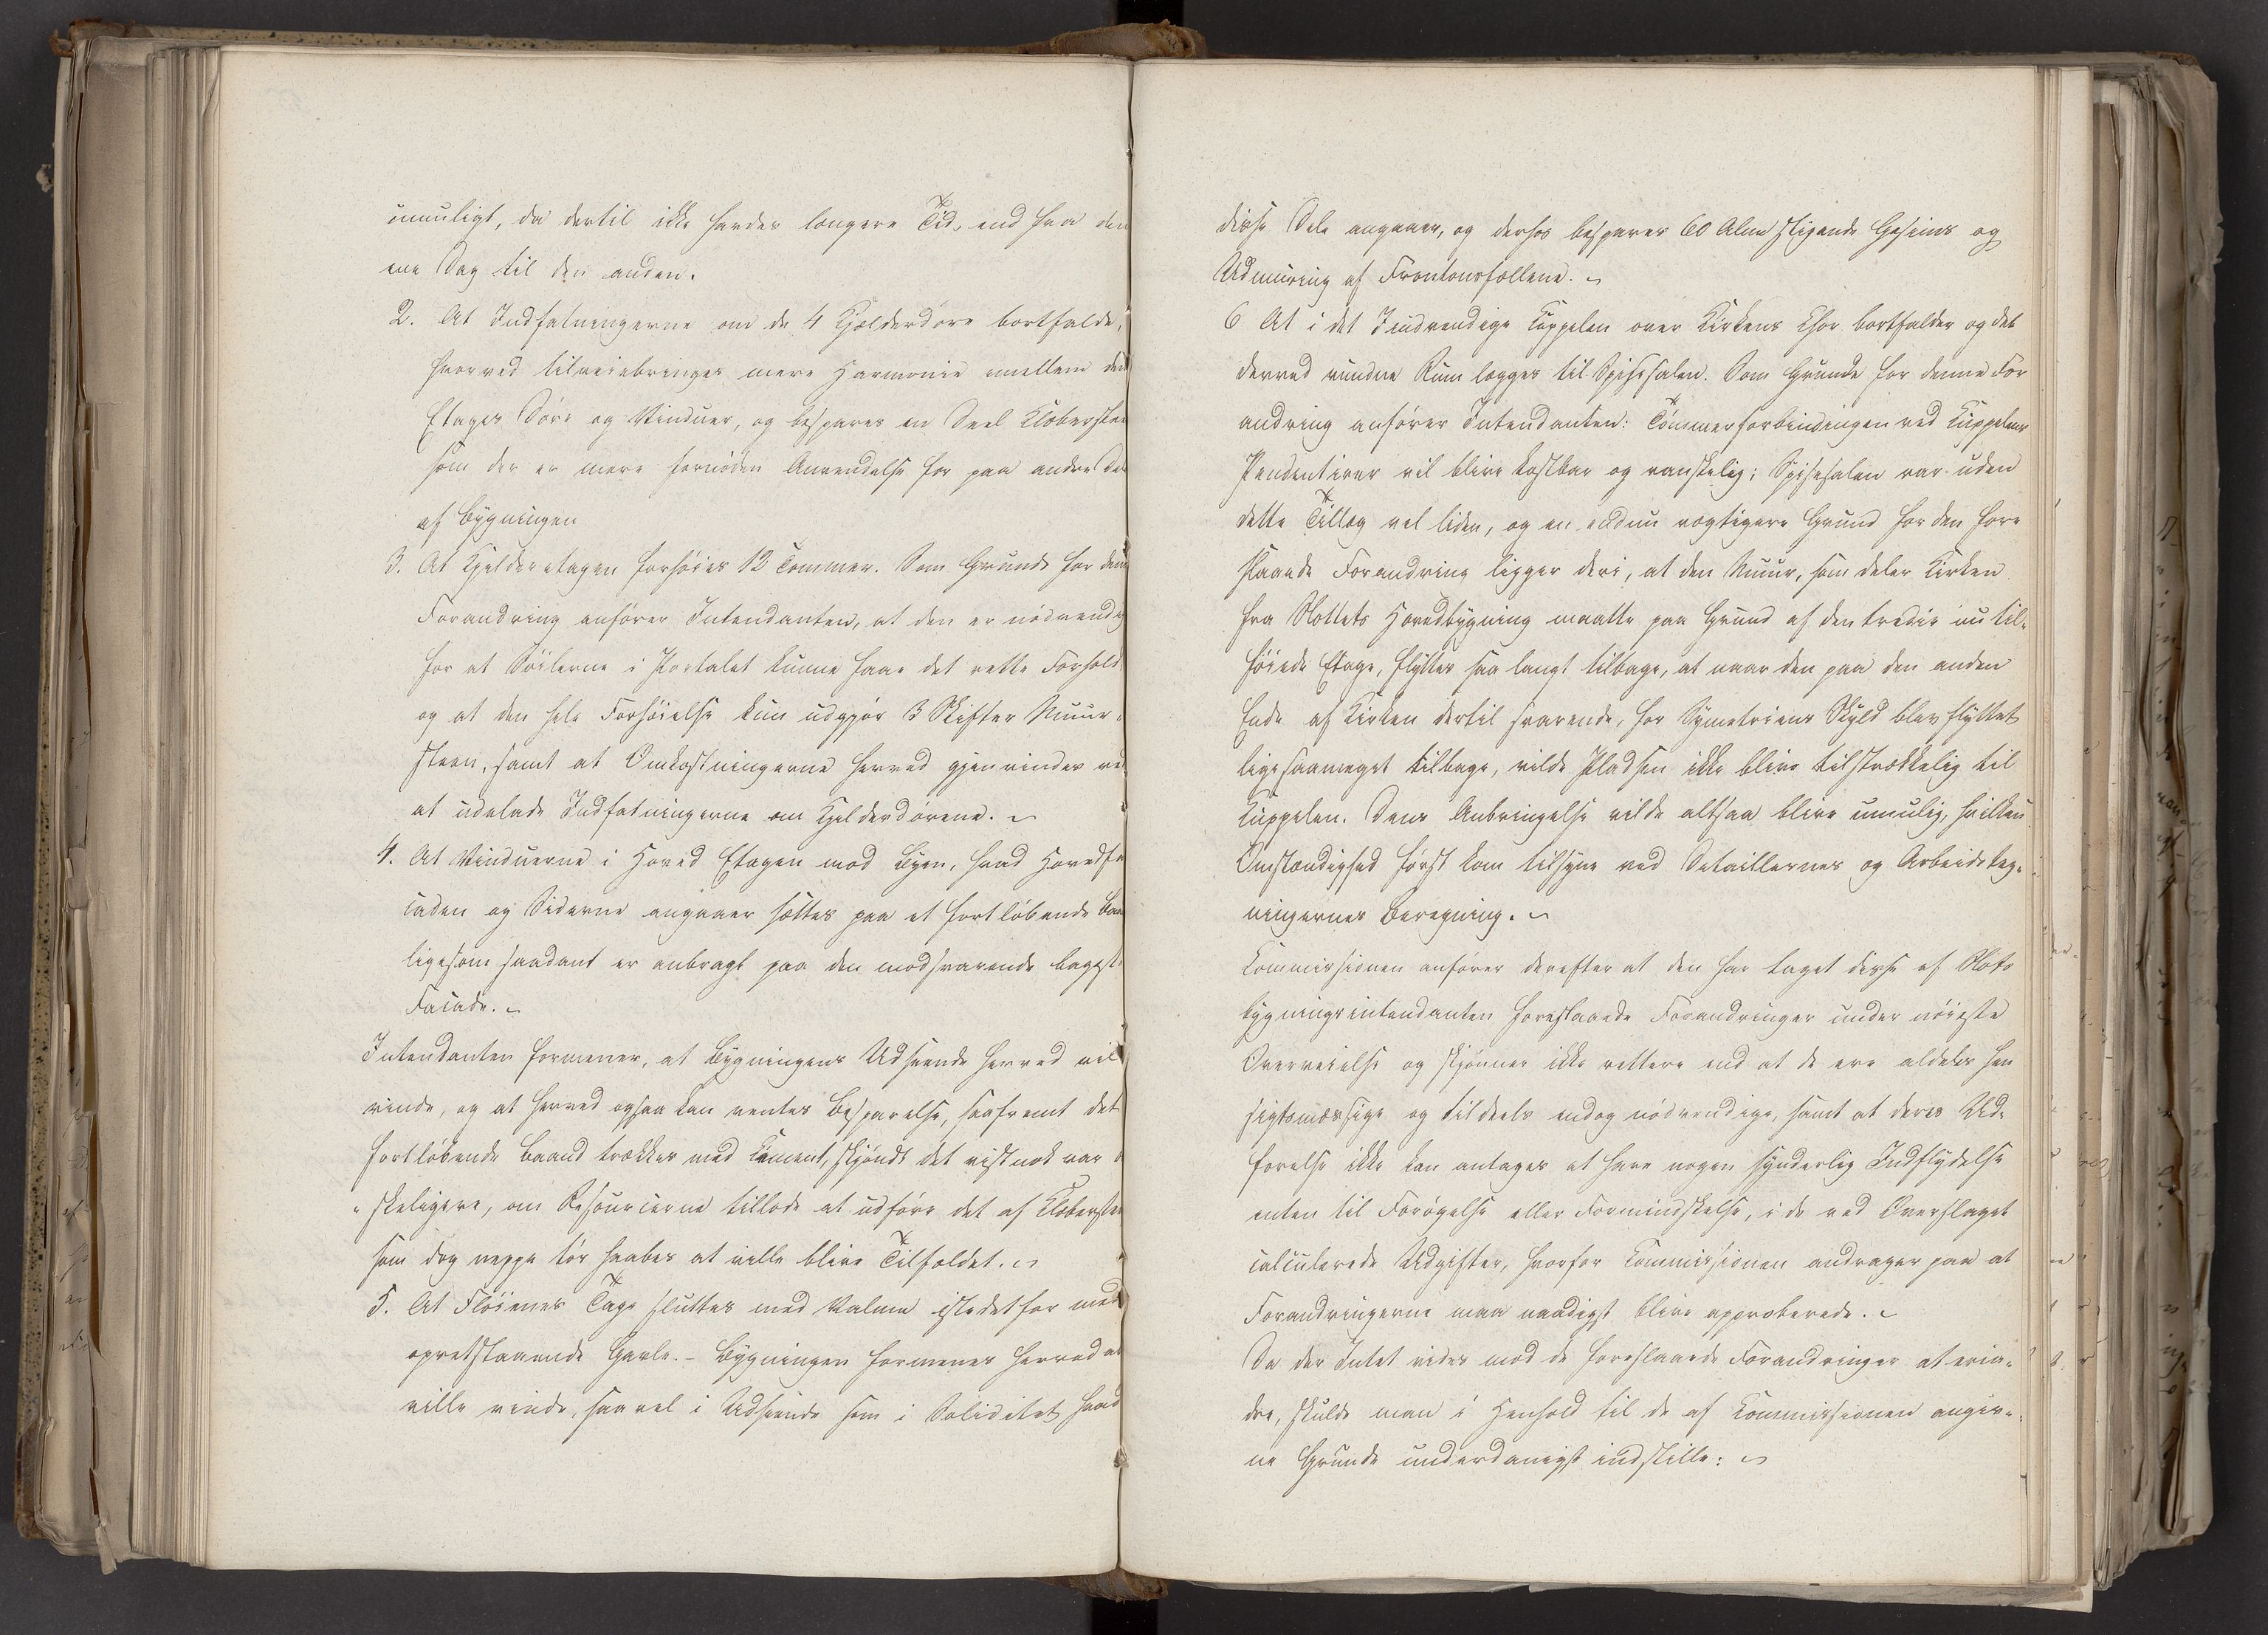 umuligt, da dertil ikke havdes længere Tid, end fra den
ene Dag til den anden.
2. At Indfatningerne om de 4 Kjælderdøre bortfalde,
hvorved tilveiebringes mere Harmonie mellem den
Etages Døre og Vinduer, og bespares en Deel Kleberste
som der er mere fornøden Anvendelse for paa andre De
af Bygningen
3. At Kjelderetagen forhøies 12 Tommer. Som Grunde for denn
Forandring anfører Intendanten, at den er nødvendig
for at Søilerne i Portalet kunne faae det rette Forhold
og at den hele Forhøielse kun udgjør 3 Skifter Muur-
steen, samt at Omkostningerne herved gjenvindes ve
at udelade Indfatningerne om Kjelderdørene.
4. At Vinduerne i Hoved Etagen mod Byen, hvad Hovedfa
caden og Siderne angaaer sættes paa et fortløbende Baa
ligesom saadant er anbragt paa den modsvarende bagest
Facade.
Intendanten formener, at Bygningens Udseende herved vil
vinde, og at herved ogsaa kan ventes Besparelse, saafremt det
fortløbende Baand trækkes med Cement, skjøndt det vistnok var ø
"skeligere, om Resourcerne tillode at udføre det af Klebersten
som dog neppe tør haabes at ville blive Tilfældet.
5. At Fløienes Tage sluttes med Valme istedetfor med
opretstaaende Gavle. - Bygningen formenes herved at
ville vinde, saavel i Udseende som i Soliditet hvad
disse Dele angaaer, og derhos bespares 60 Alen stigende Gesims og
Udmuring af Frontonsfællene.
6 At i det Indvendige Kuppelen over Kirkens Chor bortfalder og det
derved vundne Rum lægges til Spisesalen. Som Grunde for denne For
andring anfører Intendanten: Tømmerforbindingen ved Kuppelens
Pendentiver vil blive kostbar og vanskelig; Spisesalen var uden
dette Tillæg vel liden, og en endnu vægtigere Grund for den fore
slaaede Forandring ligger deri, at den Muur, som deler Kirken
fra Slottets Hovedbygning maatte paa Grund af den tredie nu til-
føiede Etage, flyttes saa langt tilbage, at naar den paa den anden
Ende af Kirken dertil svarende, for Symetriens Skyld blev flyttet
ligesaameget tilbage, vilde Pladsen ikke blive tilstrækkelig til
Kuppelen. Dens Anbringelse vilde altsaa blive umulig, hvilken
Omstændighed først kom tilsyne ved Detaillernes og Arbeidsteg-
ningernes Beregning.
Commissionen anfører derefter at den har taget disse af Slots
bygningsintendanten foreslaaede Forandringer under nøieste
Overveielse og skjønner ikke rettere end at de ere aldeles hen
sigtsmæssige og tildeels endog nødvendige, samt at deres Ud-
førelse ikke kan antages at have nogen synderlig Indflydelse
enten til Forøgelse eller Formindskelse, i de ved Overslaget
calculerede Udgifter, hvorfor Commissionen andrager paa at
Forandringerne maa naadigst blive approberede.
Da der Intet vides mod de foreslaaede Forandringer at erin-
dre, skulde man i Henhold til de af Commissionen angiv-
ne Grunde underdanigst indstille: